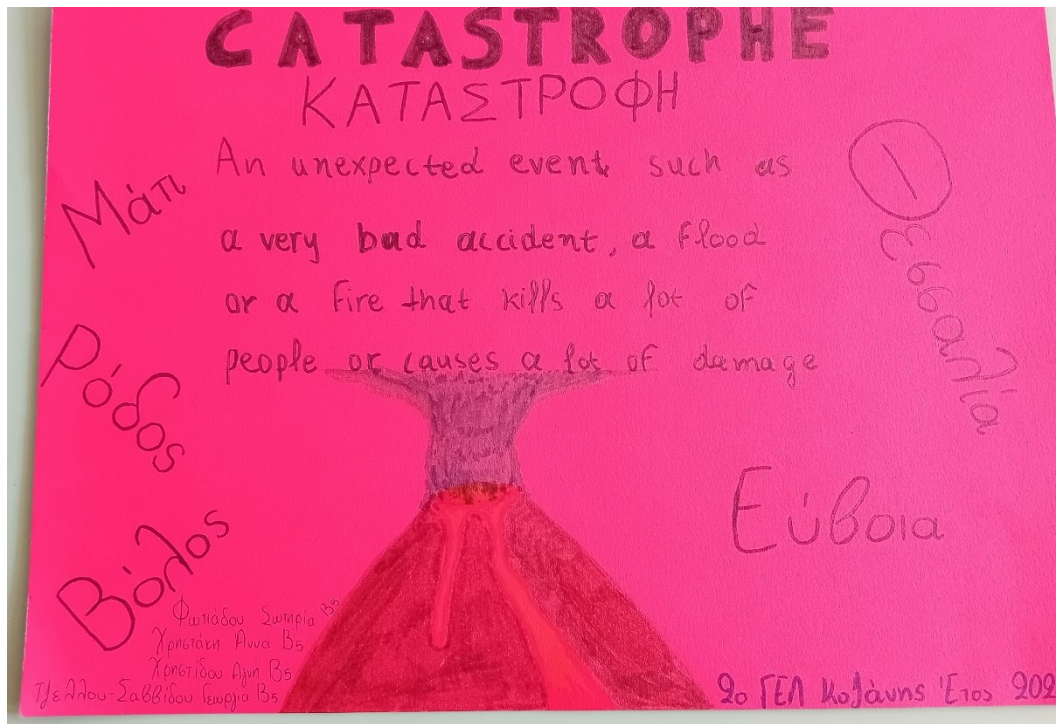 CATASTROPHE
ΚΑΤΑΣΤΡΟΦΗ
An unexpected event, such as
a very bad accident, a flood
or a fire that kills a lot of
people or causes a lot of damage
Μάτι
Ρόδος
Βόλος
Θεσσαλία
Εύβοια
Φωτιάδου Σωτηρία Β5
Χρηστάκη Άννα Β5
Χρηστίδου Αγνή Β5
Τζέλλου-Σαββίδου Γεωργία Β5
2ο ΓΕΛ Κοζάνης Έτος 202